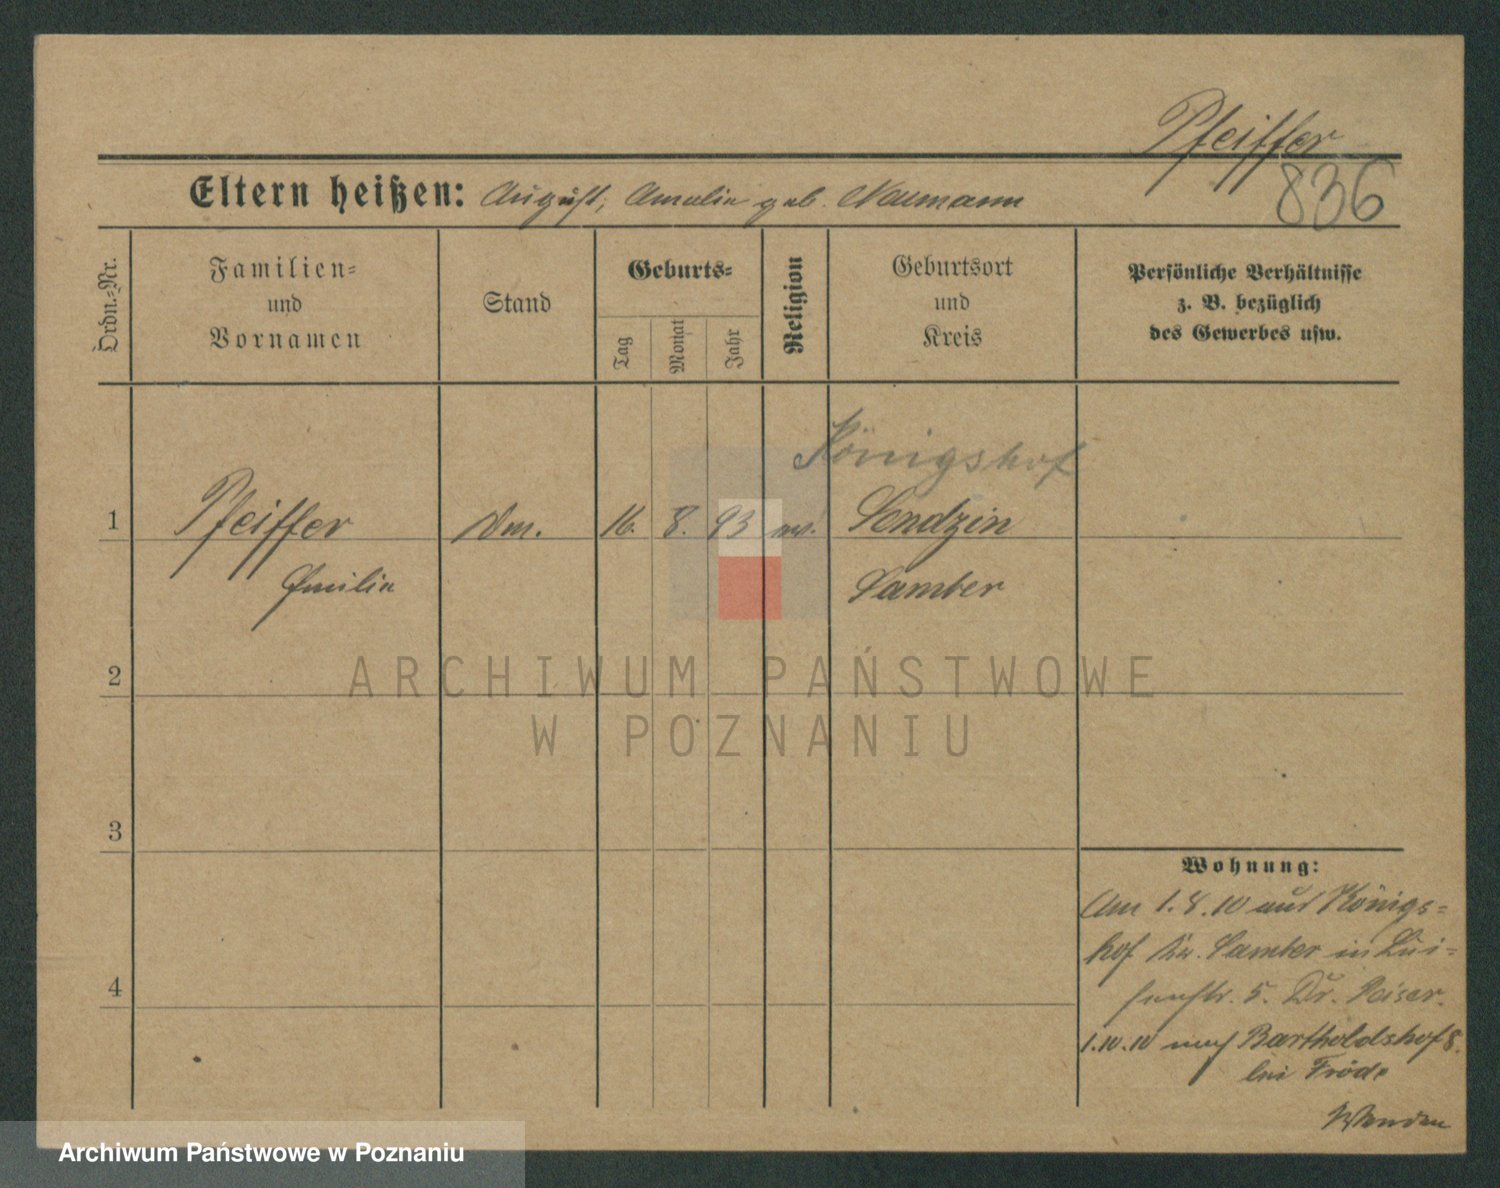 Pfeiffer
836
Eltern heißen: August, Amalie geb. Naumann
Ordn.-Nr.
Familien-
und
Vornamen
Stand
Geburts-
Tag
Monat
Jahr
Religion
Geburtsort
und
Kreis
Persönliche Verhältnisse
z. B. bezüglich
des Gewerbes usw.
Königshof
1
Pfeiffer
16. 8. 93
Sendzin
Emilie
Samter
2
ARCHIWUM PAŃSTWOWE
W POZNANIU
3
Wohnung:
Am 1.8.10 aus Königs-
hof Kr. Samter in Lui-
senstr. 5. Dr. Peiser.
4
1.10.10 nach Bartholdshof 8.
bei Fröde
Wenden
Archiwum Państwowe w Poznaniu